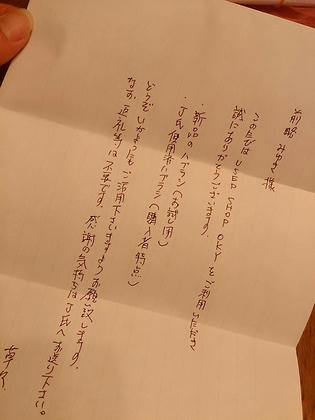 前略 みゆき様
このたびは USED SHOP OKY をご利用いただき
誠にありがとうございます。
・新品のハブラシ(お試し用)
・J氏使用済ハブラシ(購入者特点)
どうぞいかようにもご活用下さいますようお願い致します。
なお、返礼等は不要です。感謝の気持ちはJ氏へお送り下さい。
草々